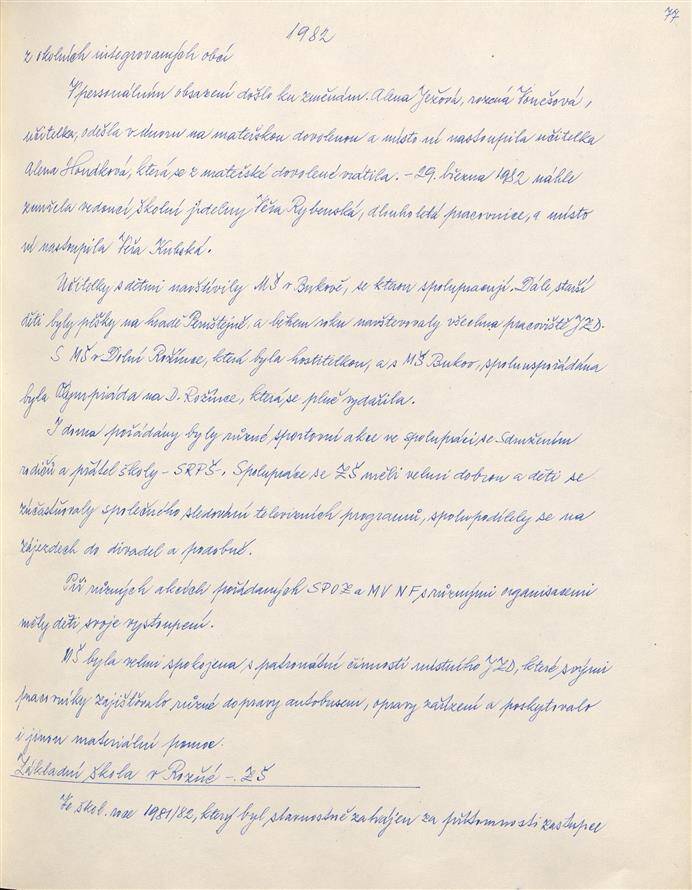 77
1982
z okolních integrovaných obcí
V personálním obsazení došlo ku změnám. Alena Ježová, rozená Vonešová,
učitelka, odešla v únoru na mateřskou dovolenou a místo ní nastoupila učitelka
Alena Houdková, která se z mateřské dovolené vrátila. - 29. března 1982 náhle
zemřela vedoucí školní jídelny Věra Rybenská, dlouholetá pracovnice, a místo
ní nastoupila Věra Kubská.
Učitelky s dětmi navštívily MŠ v Bukově, se kterou spolupracují. Dále, starší
děti byly pěšky na hradě Pernštejně, a během roku navštěvovaly všechna pracoviště JZD.
S MŠ v Dolní Rožínce, která byla hostitelkou, a s MŠ Bukov, spoluuspořádána
byla Olympiáda na D. Rožínce, která se plně vydařila.
I doma pořádány byly různé sportovní akce ve spolupráci se Sdružením
rodičů a přátel školy - SRPŠ-. Spolupráce se ZŠ měli velmi dobrou a děti se
zúčastňovaly společného sledování televizních programů, spolupodílely se na
zájezdech do divadel a podobně.
Při různých akcích pořádaných SPOZ a MV NF s různými organisacemi
měly děti svoje vystoupení.
MŠ byla velmi spokojena s patronátní činností místního JZD, které svými
pracovníky zajišťovalo různé dopravy autobusem, opravy zařízení a poskytovalo
i jinou materiální pomoc.
Základní škola v Rožné - ZŠ
Ve škol. roce 1981/82, který byl slavnostně zahájen za přítomnosti zástupce